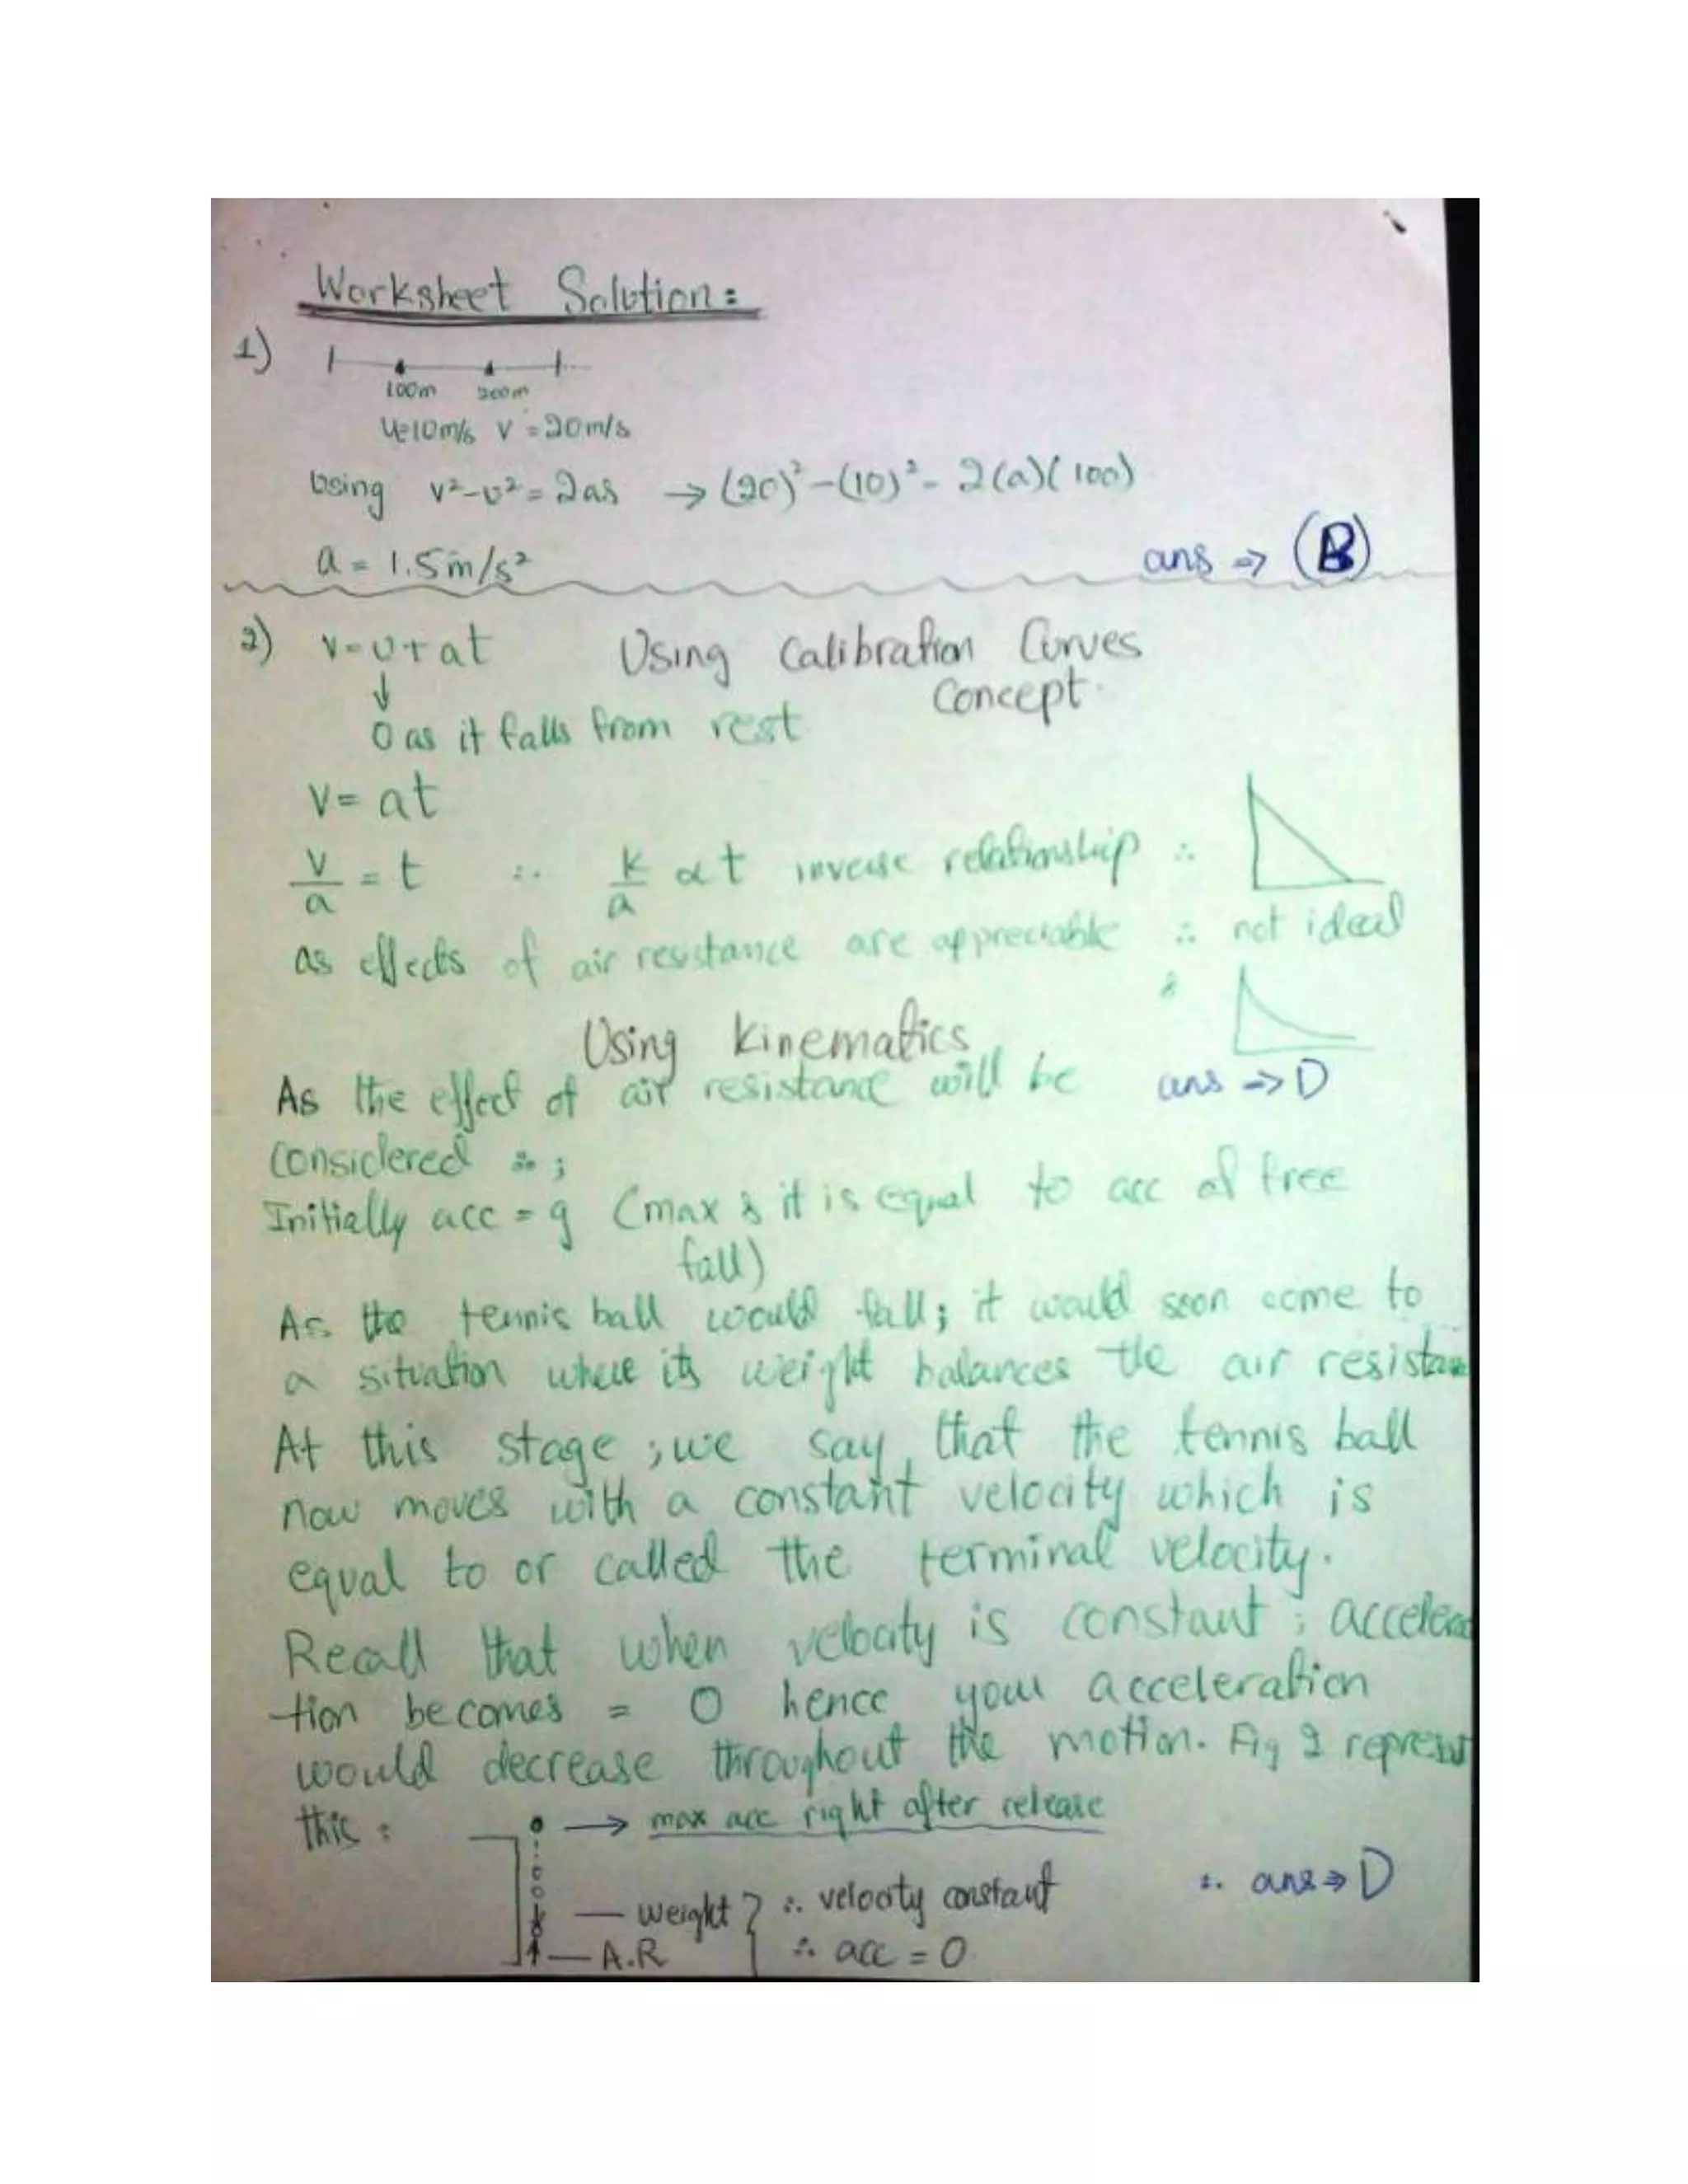 Worksheet Solution:
1)
100m 200m
u=10m/s v=20m/s
Using v²-u²=2as → (20)²-(10)²= 2(a)(100)
a = 1.5m/s²
ans ⇒ (B)
2) v=u+at Using Calibration Curves
Concept.
↓
0 as it falls from rest
v= at
v/a = t ∴ k/a α t inverse relationship ∴
as effects of air resistance are appreciable ∴ not ideal
&
Using Kinematics
As the effect of air resistance will be ans ⇒ D
considered ∴ ;
Initially acc = g (max & it is equal to acc of free
fall)
As the tennis ball would fall; it would soon come to
a situation where its weight balances the air resistan
At this stage ; we say that the tennis ball
now moves with a constant velocity which is
equal to or called the terminal velocity.
Recall that when velocity is constant ; accelera
-tion becomes = 0 hence your acceleration
would decrease throughout the motion. Fig 2 represent
this : → max acc right after release
— weight } ∴ velocity constant ∴ ans ⇒ D
— A.R ∴ acc = 0